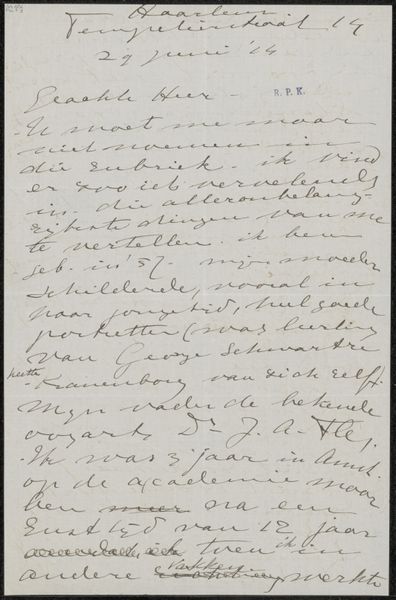 Haarlem
Tempelierstraat 14
29 Juni '14
Geachte Heer -
R. P. K.
U moet me maar
niet noemen in
die rubriek. ik vind
er zoo iets vervelends
in. die alleronbelang-
rijkste dingen van me
te vertellen. ik ben
geb. in '57. mijn moeder
schilderde, vooral in
haar jongetijd, heel goede
portretten (was leerling
van George Schwartze
heette
Kranenborg van zich zelf.
Mijn vader de bekende
oogarts Dr J. A.
Ik was 3 jaar in Amst.
op de academie maar
ben na een
rusttijd van 12 jaar
toen ik in
vakken
andere werkte